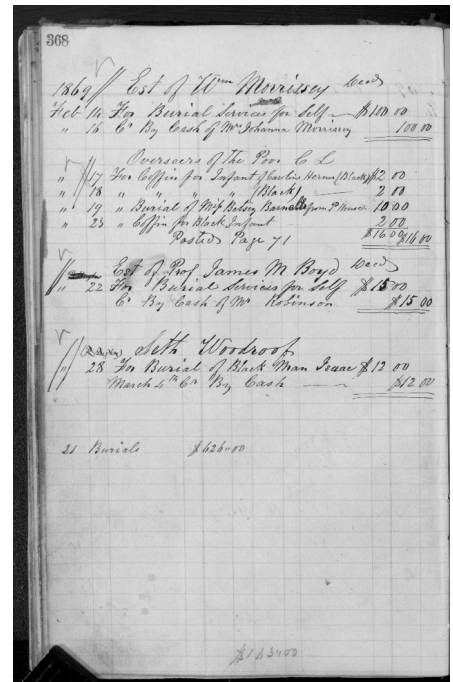 368
1869 // Est of Wm Morrissey Decd
Feb 14 For Burial Services for Self — $100 00
" 16 Cr By Cash of Mrs Johanna Morrissey 100 00
Overseers of The Poor C L
" 17 For Coffin for Infant of Caroline (Black) $2 00
" 18 " " " " (Black) — 2 00
" 19 " Burial of Miss Betsey from P House 10 00
" 23 " Coffin for Black Infant 2 00
Posted Page 71 $16 00 $16 00
Est of Prof James M Boyd Decd
" 22 For Burial Services for Self $15 00
Cr By Cash of Mr Robinson $15 00
Seth Woodroof
" 28 For Burial of Black Man Isaac $12 00
March 4th Cr By Cash — $12 00
21 Burials $626.00
$1434.00